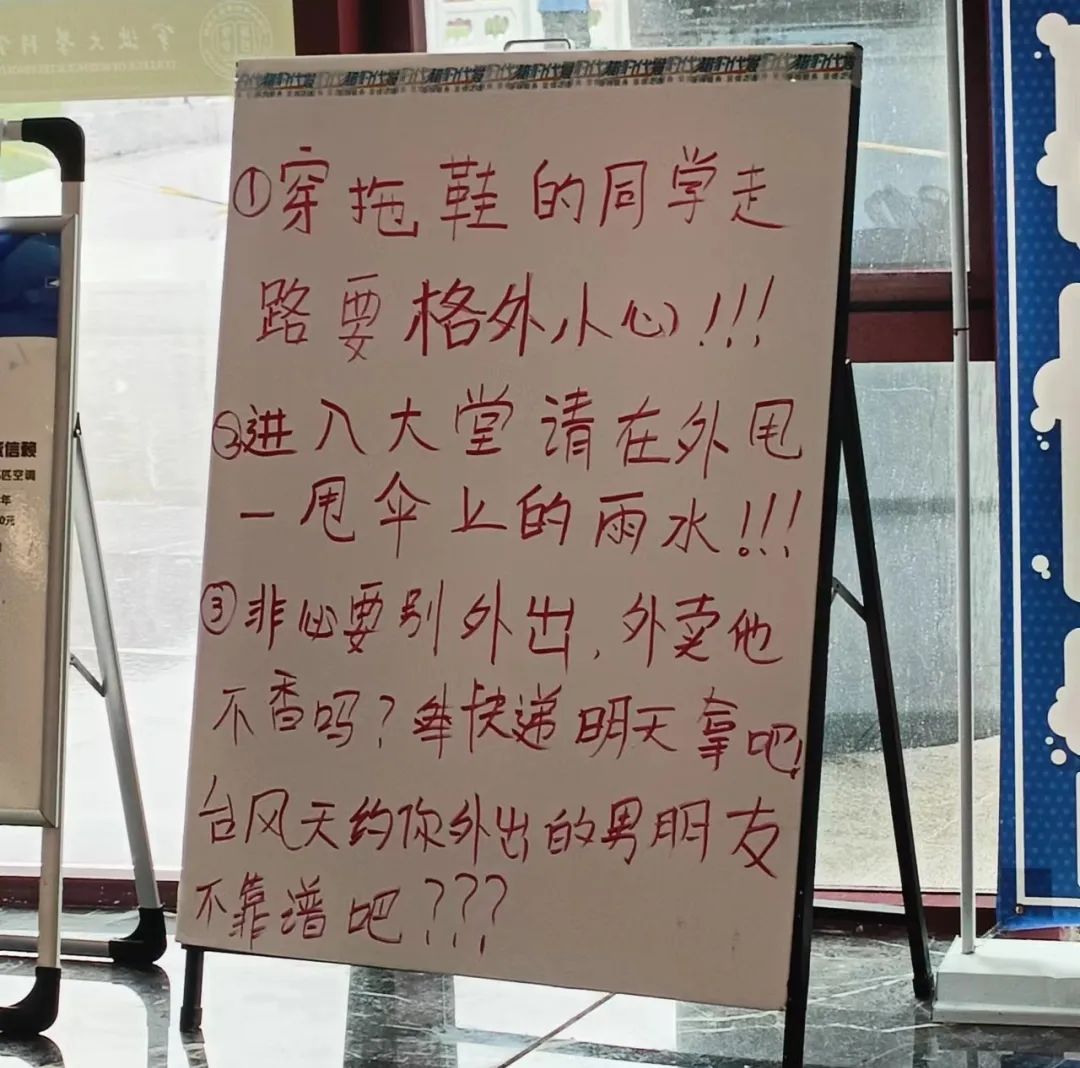 寧波大學科學
①穿拖鞋的同学走
路要格外小心!!!
②进入大堂请在外甩
一甩伞上的雨水!!!
③非必要别外出,外卖他
不香吗?快递明天拿吧!
台风天约你外出的男朋友
不靠谱吧???
信赖
匹空调
年
0元